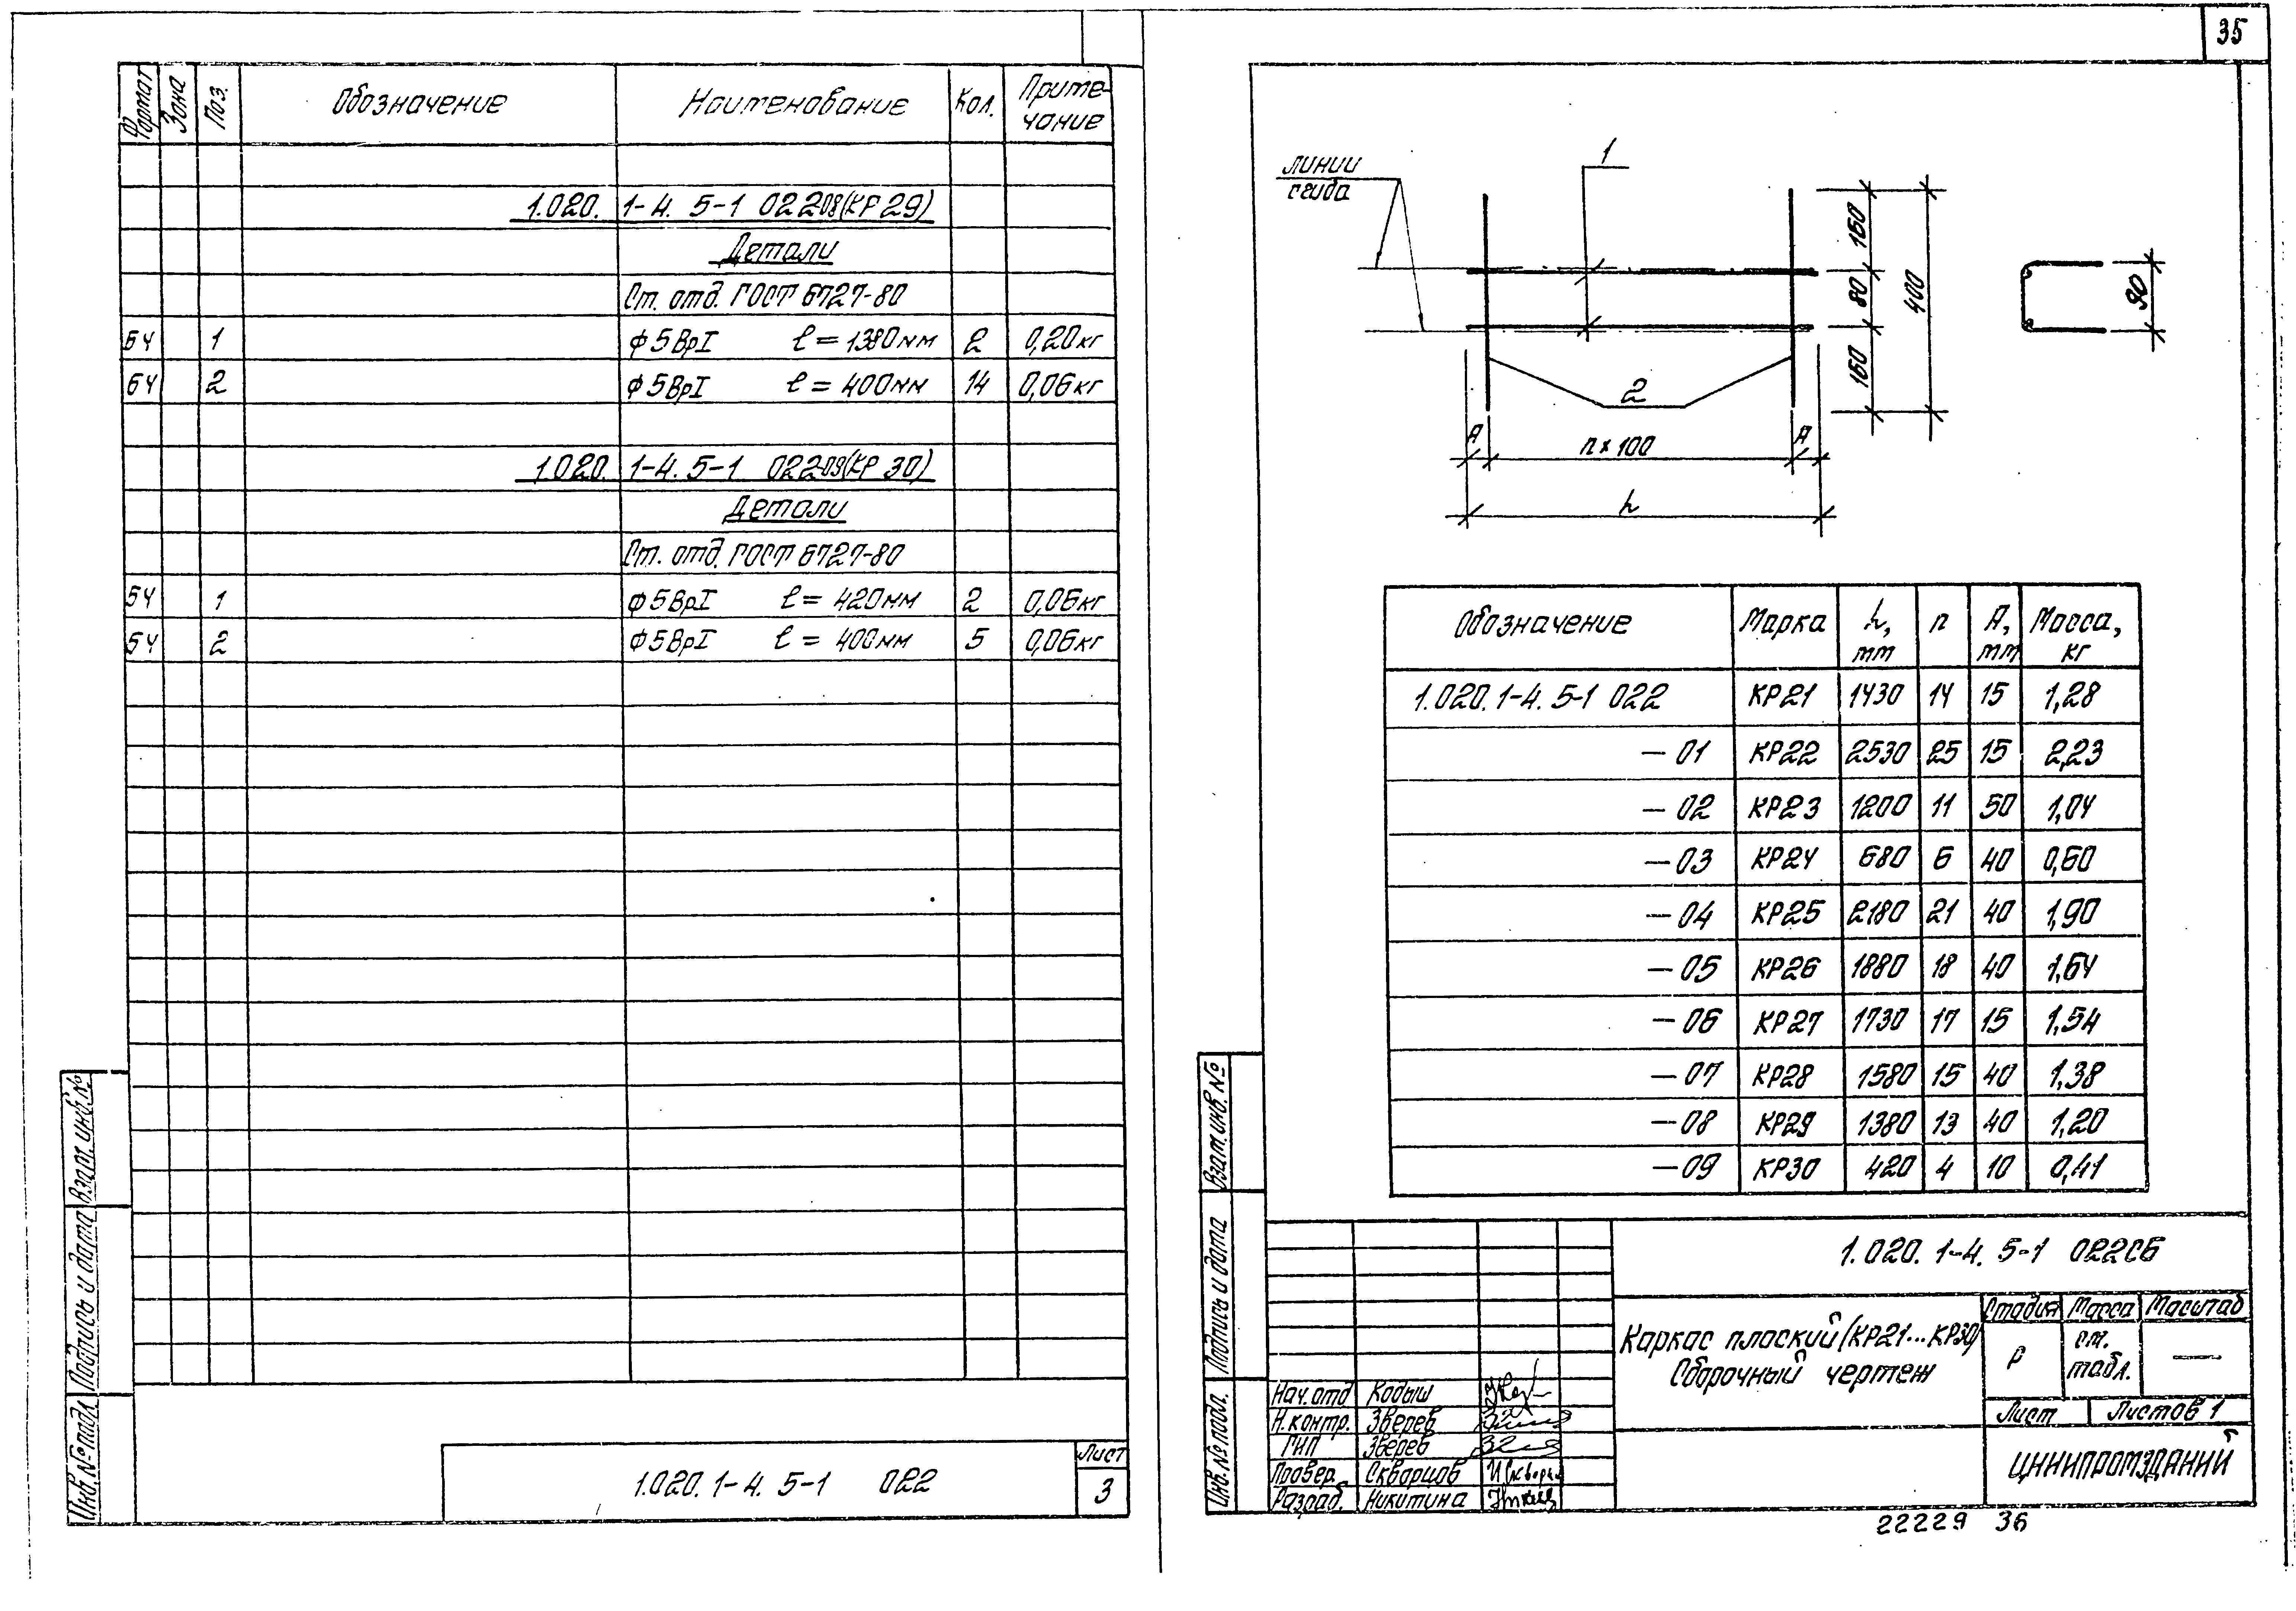 35
Формат Зона Поз. Обозначение Наименование Кол. Приме-
чание
1.020. 1-4. 5-1 022-08(КР29)
Детали
Ст. отд. ГОСТ 6727-80
БЧ 1 ф5ВрI ℓ=1380мм 2 0,20кг
БЧ 2 ф5ВрI ℓ=400мм 14 0,06кг
1.020. 1-4. 5-1 022-09(КР30)
Детали
Ст. отд. ГОСТ 6727-80
БЧ 1 ф5ВрI ℓ=420мм 2 0,06кг
БЧ 2 ф5ВрI ℓ=400мм 5 0,06кг
Взам. инв. №
Подпись и дата
Инв. № подл.
1.020. 1-4. 5-1 022
Лист
3
линии
сгиба
1
2
160
80
160
400
90
А n×100 А
h
Обозначение Марка h, мм n А, мм Масса, кг
1.020.1-4. 5-1 022 КР21 1430 14 15 1,28
-01 КР22 2530 25 15 2,23
-02 КР23 1200 11 50 1,04
-03 КР24 680 6 40 0,60
-04 КР25 2180 21 40 1,90
-05 КР26 1880 18 40 1,64
-06 КР27 1730 17 15 1,54
-07 КР28 1580 15 40 1,38
-08 КР29 1380 13 40 1,20
-09 КР30 420 4 10 0,41
Взам. инв. №
Подпись и дата
Инв. № подл.
1.020. 1-4. 5-1 022СБ
Каркас плоский (КР21...КР30)
Сборочный чертеж
Стадия Масса Масштаб
Р см. табл. —
Лист Листов 1
ЦНИИПРОМЗДАНИЙ
Нач. отд Кодыш
Н.контр. Зверев
ГИП Зверев
Провер. Скворцов
Разраб. Никитина
22229 36